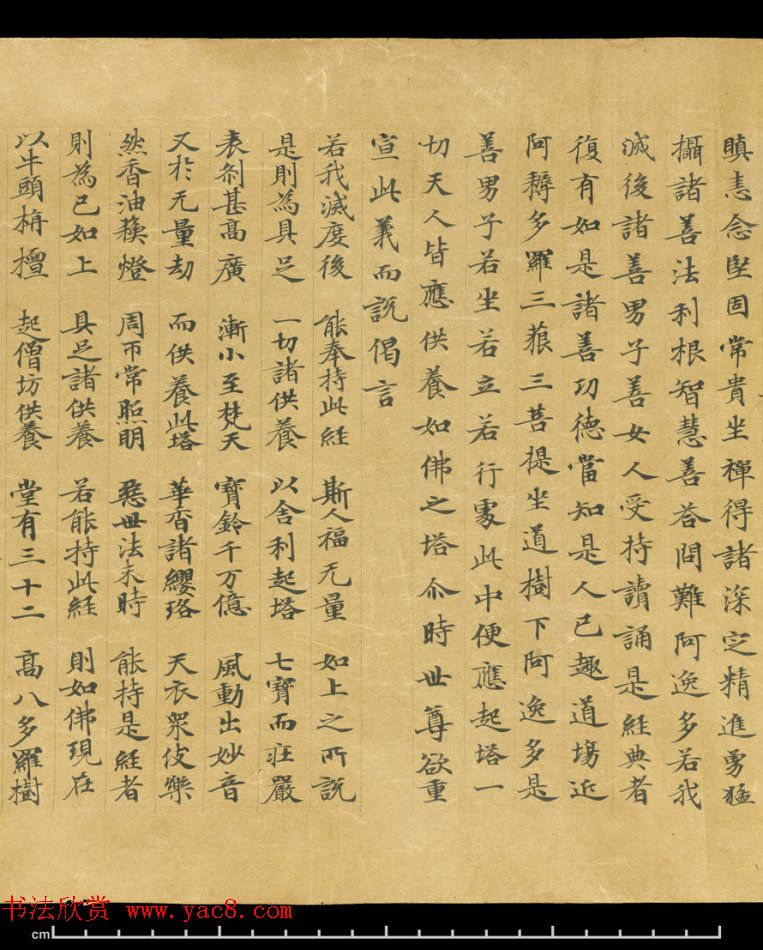 瞋恚念堅固常貴坐禪得諸深定精進勇猛
攝諸善法利根智慧善荅問難阿逸多若我
滅後諸善男子善女人受持讀誦是經典者
復有如是諸善功德當知是人已趣道場近
阿耨多羅三藐三菩提坐道樹下阿逸多是
善男子若坐若立若行處此中便應起塔一
切天人皆應供養如佛之塔尒時世尊欲重
宣此義而說偈言
若我滅度後 能奉持此經 斯人福无量 如上之所說
是則為具足 一切諸供養 以舍利起塔 七寶而莊嚴
表刹甚高廣 漸小至梵天 寶鈴千万億 風動出妙音
又於无量劫 而供養此塔 華香諸纓珞 天衣衆伎樂
然香油蘓燈 周帀常照明 惡世法末時 能持是經者
則為已如上 具足諸供養 若能持此經 則如佛現在
以牛頭栴檀 起僧坊供養 堂有三十二 高八多羅樹
书法欣赏 www.yac8.com
cm